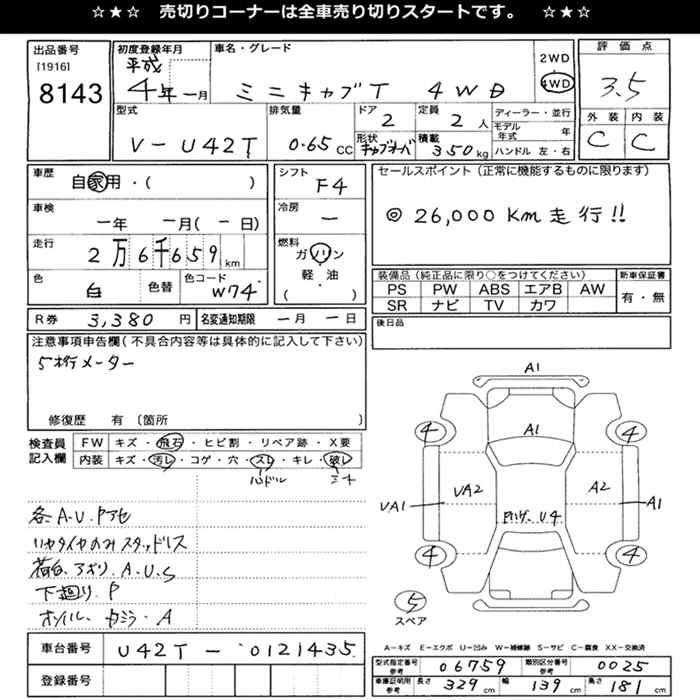 ☆★☆ 売切りコーナーは全車売り切りスタートです。 ☆★☆
出品番号
[1916]
8143
初度登録年月
平成
4年 ー月
車名・グレード
ミニキャブT 4WD
2WD
4WD
評価点
3.5
外装 内装
C C
型式
V-U42T
排気量
0.65 CC
ドア
2
定員
2 人
形状
キャブオーバ
積載
350 kg
ディーラー・並行
モデル年式 年
ハンドル 左・右
車歴
自家用・( )
車検
ー年 ー月(ー日)
走行
2万6千659 km
色
白
色替
色コード
W74
シフト
F4
冷房
ー
燃料
ガソリン
軽・油
( )
セールスポイント(正常に機能するものに限ります)
◎26,000Km走行!!
装備品(純正品に限り○をつけてください)
PS PW ABS エアB AW
SR ナビ TV カワ
新車保証書
有・無
R券 3,380 円
名変通知期限 ー月 ー日
後日品
注意事項申告欄(不具合内容等は具体的に記入して下さい)
5桁メーター
修復歴 有〔箇所 〕
検査員
記入欄
FW キズ・飛石・ヒビ割・リペア跡・X要
内装 キズ・汚レ・コゲ・穴・スレ・キレ・破レ
ハンドル
各A.U.Pアセ
リヤタイヤのみスタッドレス
荷台.アオリ.A.U.S
下廻り.P
A
A1
A1
4 4
VA1 VA2 A2 A1
U4
4 4
5
スペア
車台番号
U42T-0121435
登録番号
A-キズ E-エクボ U-凹み W-補修跡 S-サビ C-腐食 XX-交換済
型式指定番号
参考
06759
類別区分番号
参考
0025
車庫証明用
参考
長さ 329 cm
幅 139 cm
高さ 181 cm